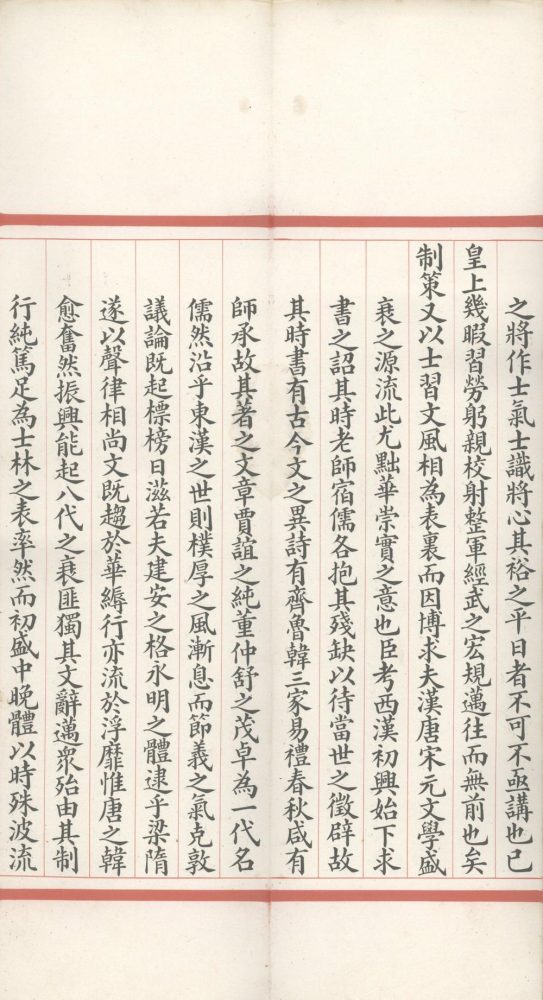 之將作士氣士識將心其裕之平日者不可不亟講也已
皇上幾暇習勞躬親校射整軍經武之宏規邁往而無前也矣
制策又以士習文風相為表裏而因博求夫漢唐宋元文學盛
衰之源流此尤黜華崇實之意也臣考西漢初興始下求
書之詔其時老師宿儒各抱其殘缺以待當世之徵辟故
其時書有古今文之異詩有齊魯韓三家易禮春秋咸有
師承故其著之文章賈誼之純董仲舒之茂卓為一代名
儒然沿乎東漢之世則樸厚之風漸息而節義之氣克敦
議論既起標榜日滋若夫建安之格永明之體逮乎梁隋
遂以聲律相尚文既趨於華縟行亦流於浮靡惟唐之韓
愈奮然振興能起八代之衰匪獨其文辭邁眾殆由其制
行純篤足為士林之表率然而初盛中晚體以時殊波流